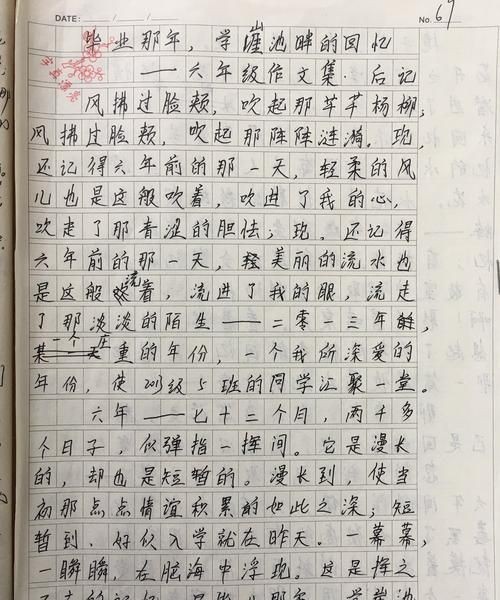 DATE: / /
No. 69
毕业那年，学崖池畔的回忆
——六年级作文集·后记
风拂过脸颊，吹起那芊芊杨柳，
风拂过脸颊，吹起那阵阵涟漪。现，
还记得六年前的那一天，轻柔的风
儿也是这般吹着，吹进了我的心，
吹走了那青涩的胆怯；现，还记得
六年前的那一天，美丽的流水也
是这般流着，流进了我的眼，流走
了那淡淡的陌生——二零一三年，
一个庄重的年份，一个我所深爱的
年份，使2013级5班的同学汇聚一堂。
六年——七十二个月，两千多
个日子，似弹指一挥间。它是漫长
的，却也是短暂的。漫长到，使当
初那点点情谊积累的如此之深；短
暂到，好似入学就在昨天。一幕幕，
一瞬瞬，在脑海中浮现。这是挥之